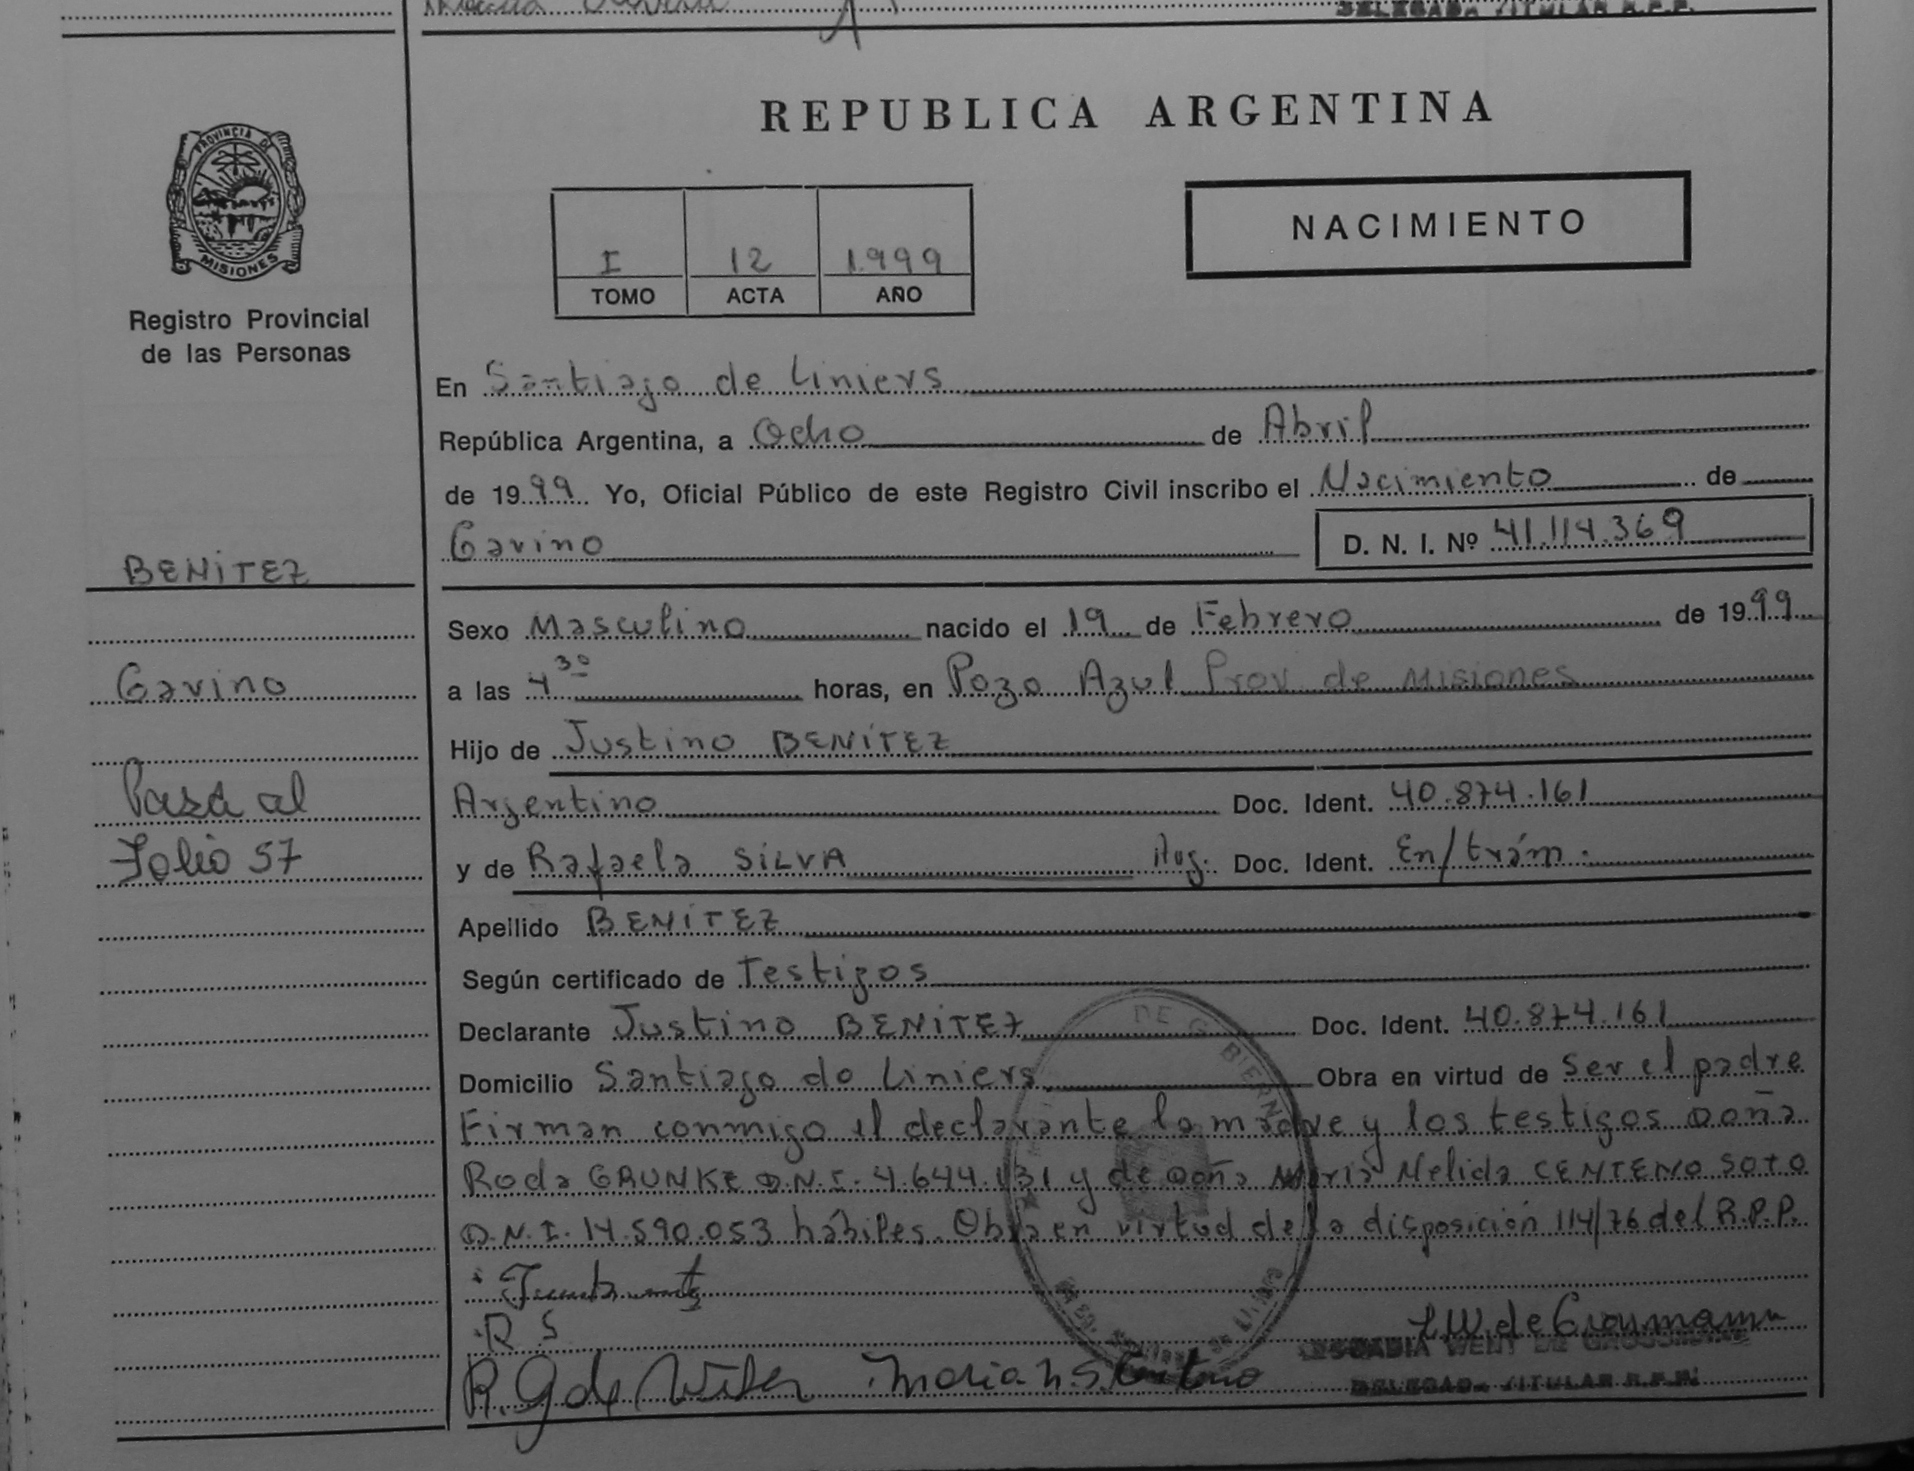 DELEGADA TITULAR R.P.P.
REPUBLICA ARGENTINA
PROVINCIA DE
MISIONES
Registro Provincial
de las Personas
I 12 1.999
TOMO ACTA AÑO
NACIMIENTO
En Santiago de Liniers
República Argentina, a Ocho de Abril
de 1999 Yo, Oficial Público de este Registro Civil inscribo el Nacimiento de
Gavino D. N. I. Nº 41.114.369
BENITEZ
Sexo Masculino nacido el 19 de Febrero de 1999
Gavino
a las 4³⁰ horas, en Pozo Azul Prov. de Misiones
Hijo de Justino BENITEZ
Pasa al
Argentino Doc. Ident. 40.874.161
Folio 57
y de Rafaela SILVA Arg. Doc. Ident. En/trám.
Apellido BENITEZ
Según certificado de Testigos
Declarante Justino BENITEZ Doc. Ident. 40.874.161
Domicilio Santiago de Liniers Obra en virtud de ser el padre
Firman conmigo el declarante la madre y los testigos Doña
Roda GRUNKE D.N.I. 4.644.131 y de Doña Maria Nelida CENTENO SOTO
D.N.I. 14.590.053 hábiles. Obra en virtud de la disposición 114/76 del R.P.P.
R S
L W de Groumann
WENT DE
R. G de María N. S. Centeno
DELEGADA TITULAR R.P.P.